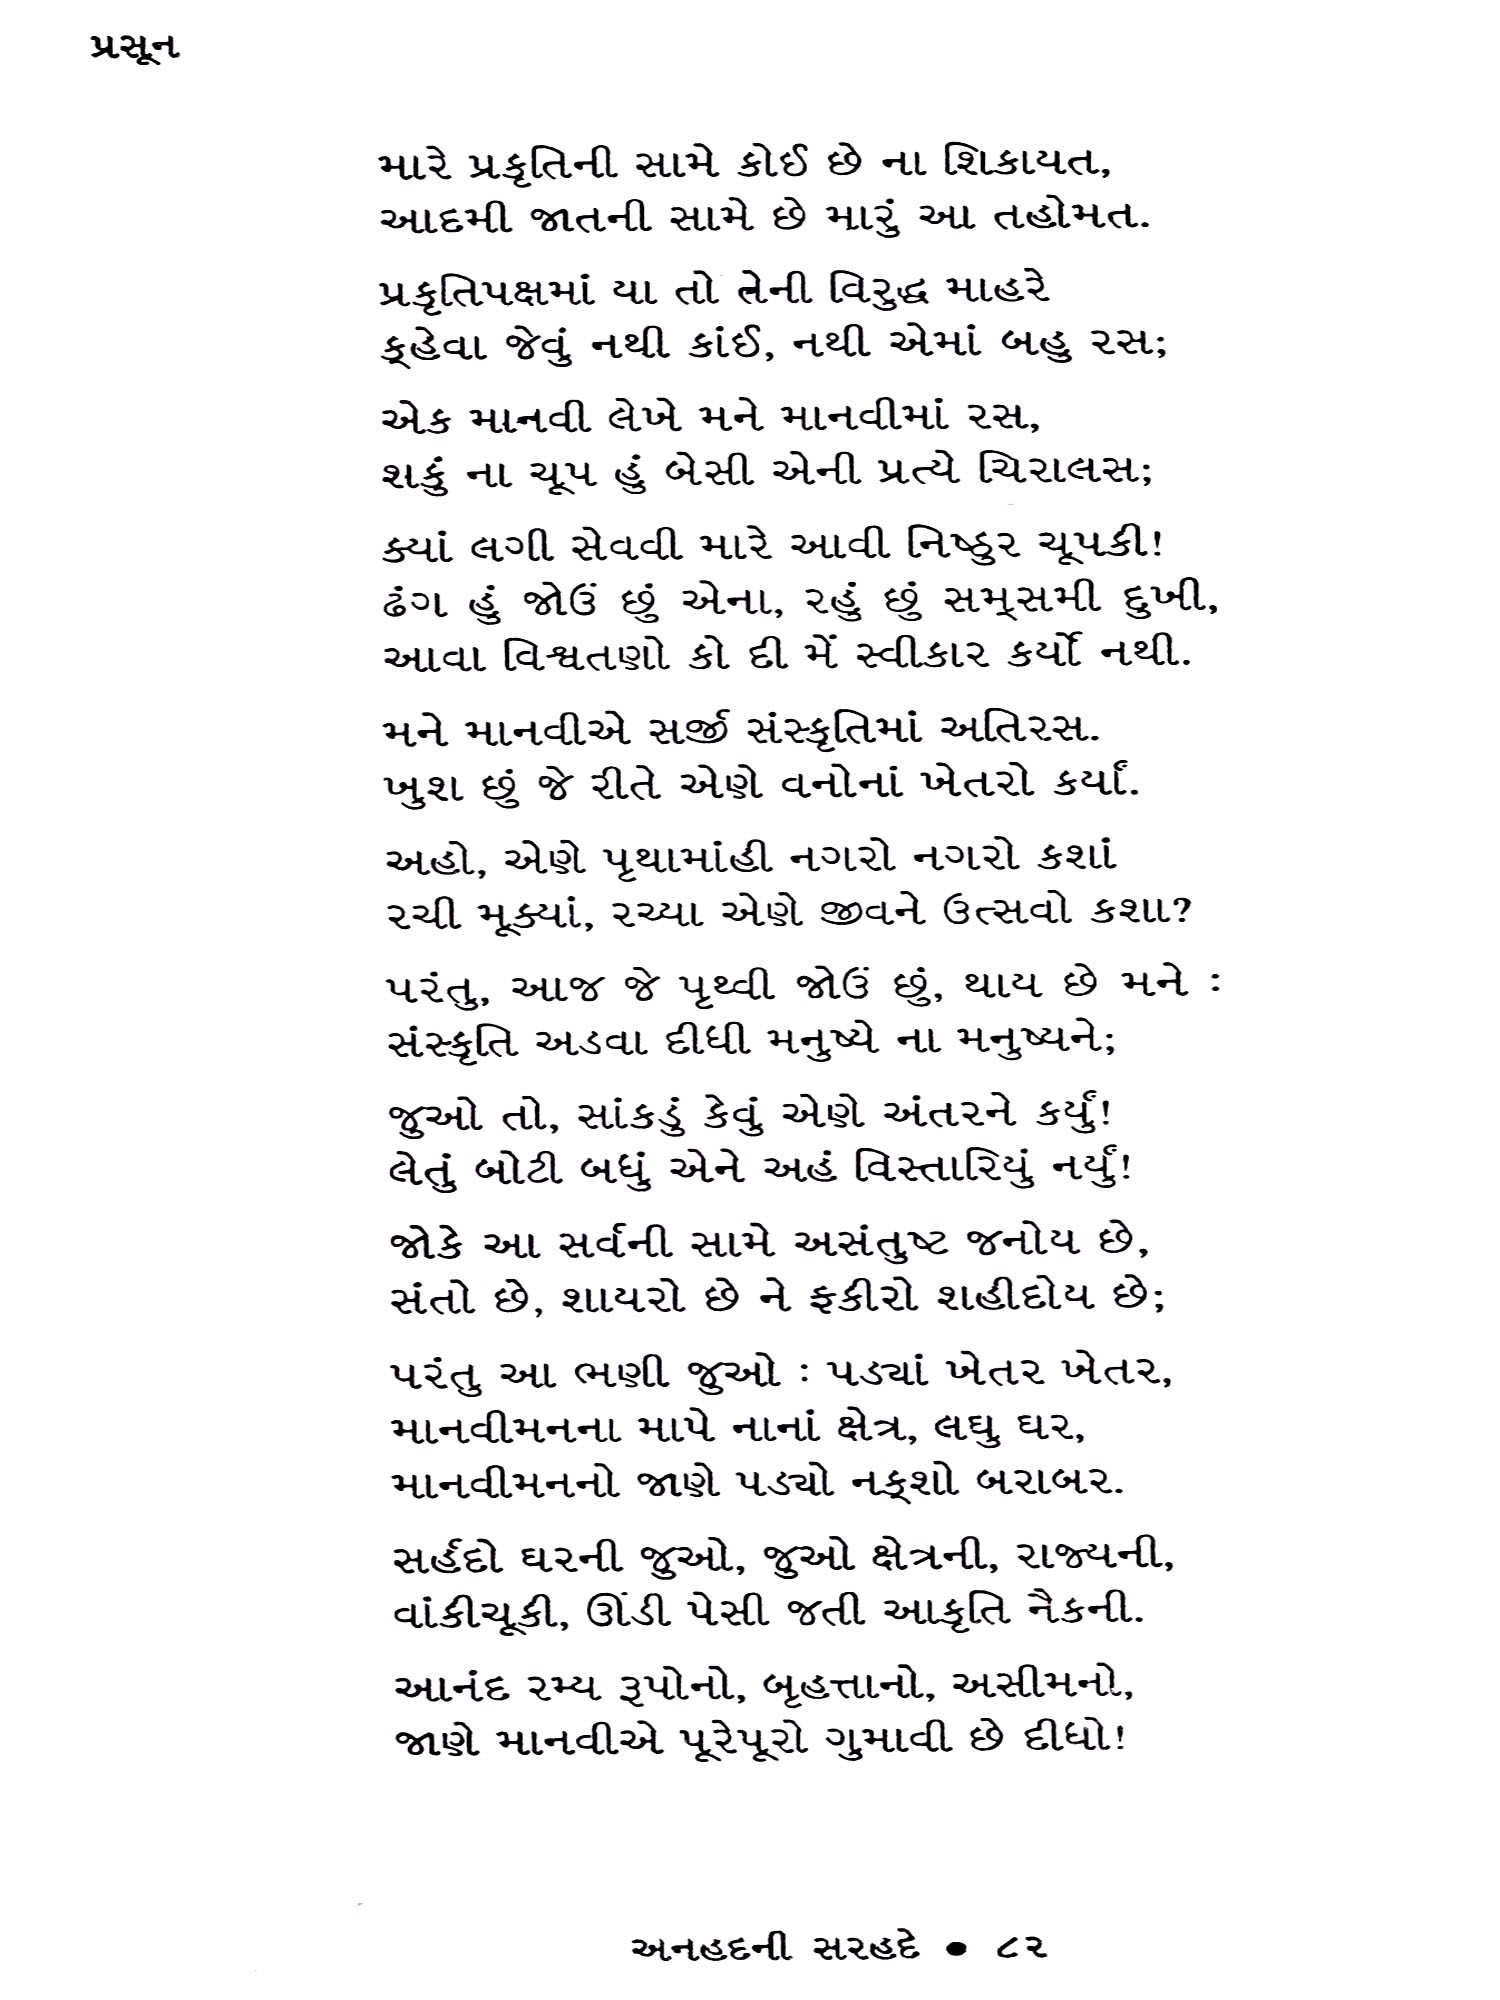 પ્રસૂન
મારે પ્રકૃતિની સામે કોઈ છે ના શિકાયત,
આદમી જાતની સામે છે મારું આ તહોમત.
પ્રકૃતિપક્ષમાં યા તો તેની વિરુદ્ધ માહરે
ક્‌હેવા જેવું નથી કાંઈ, નથી એમાં બહુ રસ;
એક માનવી લેખે મને માનવીમાં રસ,
શકું ના ચૂપ હું બેસી એની પ્રત્યે ચિરાલસ;
ક્યાં લગી સેવવી મારે આવી નિષ્ઠુર ચૂપકી!
ઢંગ હું જોઉં છું એના, રહું છું સમ્‌સમી દુખી,
આવા વિશ્વતણો કો દી મેં સ્વીકાર કર્યો નથી.
મને માનવીએ સર્જી સંસ્કૃતિમાં અતિરસ.
ખુશ છું જે રીતે એણે વનોનાં ખેતરો કર્યાં.
અહો, એણે પૃથામાંહી નગરો નગરો કશાં
રચી મૂક્યાં, રચ્યા એણે જીવને ઉત્સવો કશા?
પરંતુ, આજ જે પૃથ્વી જોઉં છું, થાય છે મને :
સંસ્કૃતિ અડવા દીધી મનુષ્યે ના મનુષ્યને;
જુઓ તો, સાંકડું કેવું એણે અંતરને કર્યું!
લેતું બોટી બધું એને અહં વિસ્તારિયું નર્યું!
જોકે આ સર્વની સામે અસંતુષ્ટ જનોય છે,
સંતો છે, શાયરો છે ને ફકીરો શહીદોય છે;
પરંતુ આ ભણી જુઓ : પડ્યાં ખેતર ખેતર,
માનવીમનના માપે નાનાં ક્ષેત્ર, લઘુ ઘર,
માનવીમનનો જાણે પડ્યો નક્‌શો બરાબર.
સર્હદો ઘરની જુઓ, જુઓ ક્ષેત્રની, રાજ્યની,
વાંકીચૂકી, ઊંડી પેસી જતી આકૃતિ નૈકની.
આનંદ રમ્ય રૂપોનો, બૃહત્તાનો, અસીમનો,
જાણે માનવીએ પૂરેપૂરો ગુમાવી છે દીધો!
અનહદની સરહદે ● ૮૨